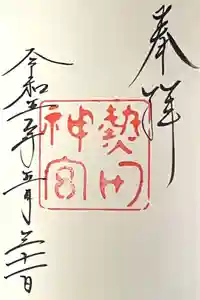 奉拝
熱田
神宮
令和五年五月三十一日